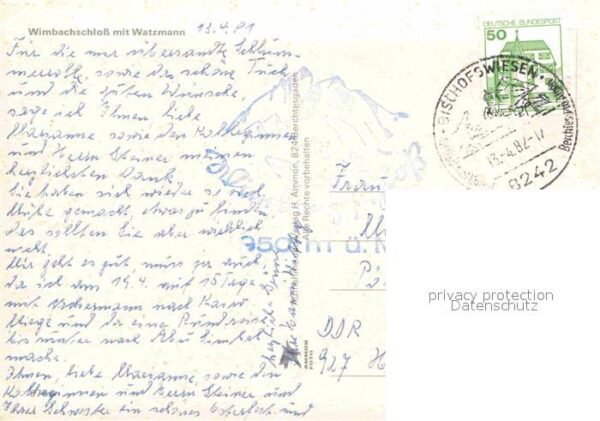 Wimbachschloß mit Watzmann
13.4.81
Für die mir übersandte Schlum-
merrolle, sowie das schöne Tuch
und die guten Wünsche,
sage ich Ihnen liebe
Marianne sowie den Kolleginnen
und Herrn Steiner meinen
herzlichsten Dank.
Sie haben sich wieder so viel
Mühe gemacht, etwas zu finden
Das sollten Sie aber wirklich
nicht.
Mir geht es gut, muss ja auch
da ich am 19.4. auf 15 Tage
mit nach Kairo
fliege und da eine Rundreise
bis runter nach Abu Simbel
mache.
Ihnen, liebe Marianne, sowie den
Kolleginnen und Herrn Steiner und
Ihrer Schwester ein schönes Osterfest und
herzliche Grüße
Verlag H. Ammon, 824 Berchtesgaden
Alle Rechte vorbehalten
AMMON
FOTO
950 m ü. M
Frau
DDR
927
DEUTSCHE BUNDESPOST
50
BISCHOFSWIESEN
8242
privacy protection
Datenschutz